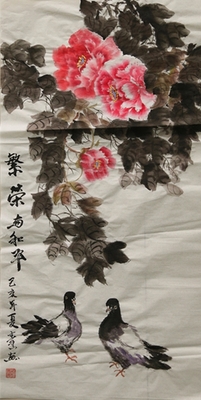 繁荣与和平
己亥年夏